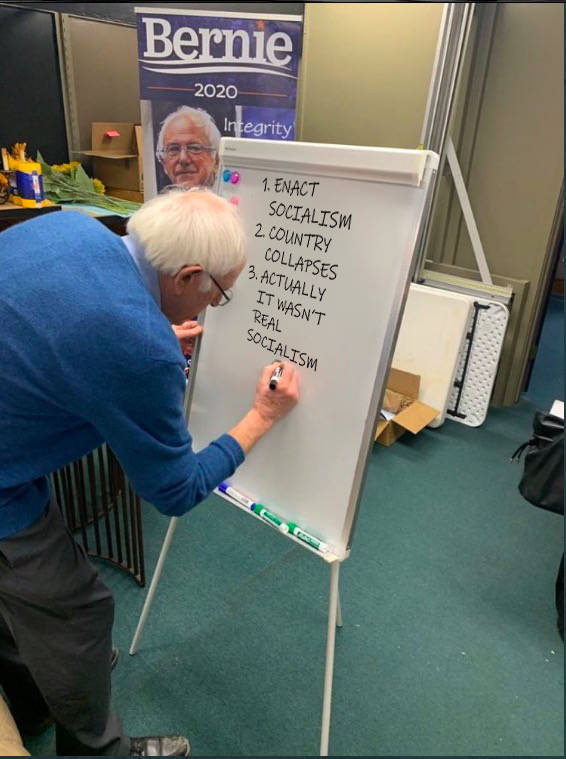 Bernie
2020
Integrity
1. ENACT
SOCIALISM
2. COUNTRY
COLLAPSES
3. ACTUALLY
IT WASN'T
REAL
SOCIALISM